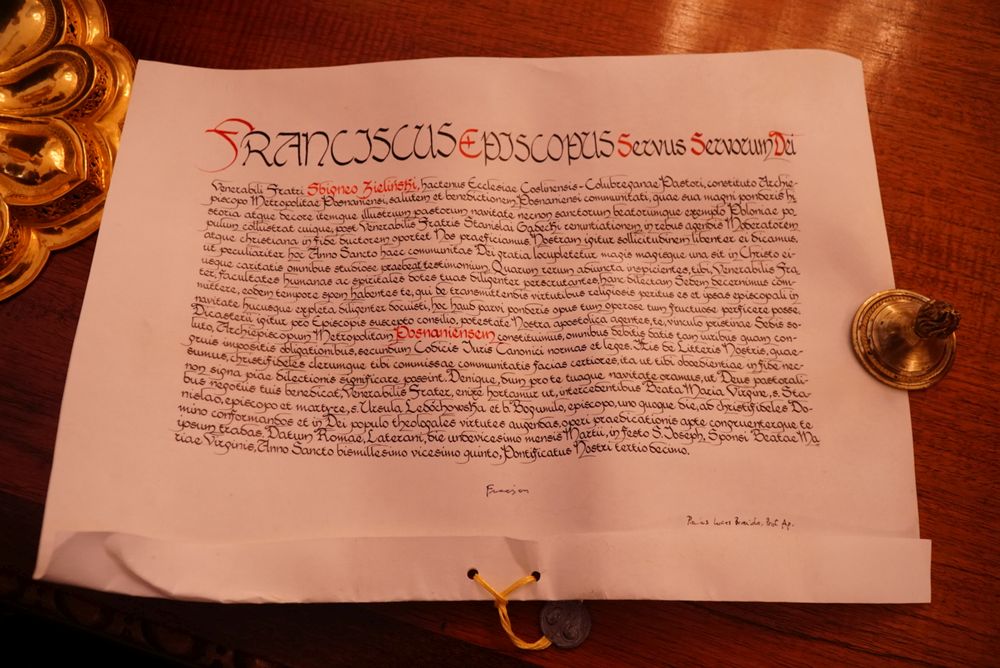 FRANCISCUS EPISCOPUS Servus Servorum Dei
Venerabili Fratri Sbigneo Zieliński, hactenus Ecclesiae Coslinensis-Colubreganae Pastori, constituto Archie-
piscopo Metropolitae Posnaniensi, salutem et benedictionem. Posnaniensi communitati, quae sua magni ponderis hi
storia atque decore itemque illustrium pastorum navitate necnon sanctorum beatorumque exemplo Poloniae po-
pulum collustrat cuique, post Venerabilis Fratris Stanislai Gądecki renuntiationem in rebus agendis Moderatorem
atque christiana in fide ductorem oportet Nos praeficiamus. Nostram igitur sollicitudinem libenter ei dicamus,
ut peculiariter hoc Anno Sancto haec communitas Dei gratia locupletetur magis magisque una sit in Christo ei-
usque caritatis omnibus studiose praebeat testimonium. Quarum rerum adiuncta inspicientes, tibi, Venerabilis Fra-
ter, facultates humanas ac spiritales dotes tuas diligenter perscrutantes, hanc dilectam Sedem decernimus com-
mittere, eodem tempore spem habentes te, qui de transmittendis virtutibus religiosis peritus es et ipsas episcopali in
navitate hucusque expleta diligenter docuisti, hoc haud parvi ponderis opus tum operose tum fructuose perficere posse.
Dicasterii igitur pro Episcopis suscepto consilio, potestate Nostra apostolica agentes, te, vinculo pristinae Sedis so-
luto, Archiepiscopum Metropolitam Posnaniensem constituimus, omnibus debitis datis tam iuribus quam con-
gruis impositis obligationibus, secundum Codicis Iuris Canonici normas et leges. His de Litteris Nostris, quae-
sumus, christifideles clerumque tibi commissae communitatis facias certiores, ita ut tibi oboedientiae in fide nec-
non signa piae dilectionis significare possint. Denique, dum pro te tuaque navitate oramus, ut Deus pastorali-
bus negotiis tuis benedicat, Venerabilis Frater, enixe hortamur ut, intercedentibus Beata Maria Virgine, s. Sta-
nislao, episcopo et martyre, s. Ursula Ledóchowska et b. Bogumilo, episcopo, uno quoque die, ad christifideles Do-
mino conformandos et in Dei populo theologales virtutes augendas, operi praedicationis apte congruenterque te
ipsum tradas. Datum Romae, Laterani, die undevicesimo mensis Martii, in festo S. Ioseph, Sponsi Beatae Ma
riae Virginis, Anno Sancto bismillesimo vicesimo quinto, Pontificatus Nostri tertio decimo.